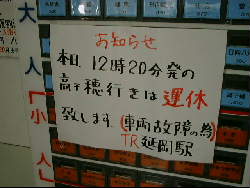 お知らせ
本日、12時20分発の
高千穂行きは運休
致します(車両故障の為)
TR延岡駅
大人
「小人」